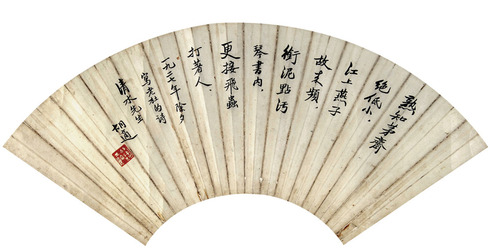 熟知茅齋
絕低小
江上燕子
故來頻
銜泥點污
琴書內
更接飛蟲
打著人
一九二七年除夕
寫老杜的詩
清水先生
胡適